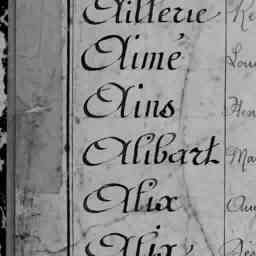 Aillerie
Aimé
Ains
Alibart
Alix
Alix